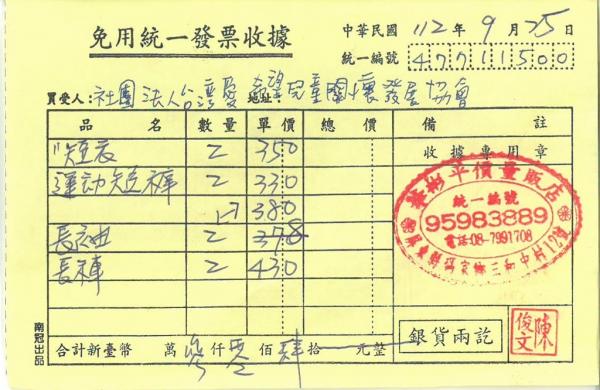 免用統一發票收據
中華民國 112 年 9 月 25 日
統一編號 47711500
買受人: 社團法人台灣愛希望兒童關懷發展協會
地址:
品名 數量 單價 總價 備註
短衣 2 350
運动短褲 2 330
2 380
長衣 2 378
長褲 2 430
收據專用章
彬平價量販店
統一編號
95983889
電話:08-7991708
屏東縣瑪家鄉三和中村12號
合計新臺幣 萬 參 仟 零 佰 肆 拾 元整
銀貨兩訖
陳俊文
南冠出品